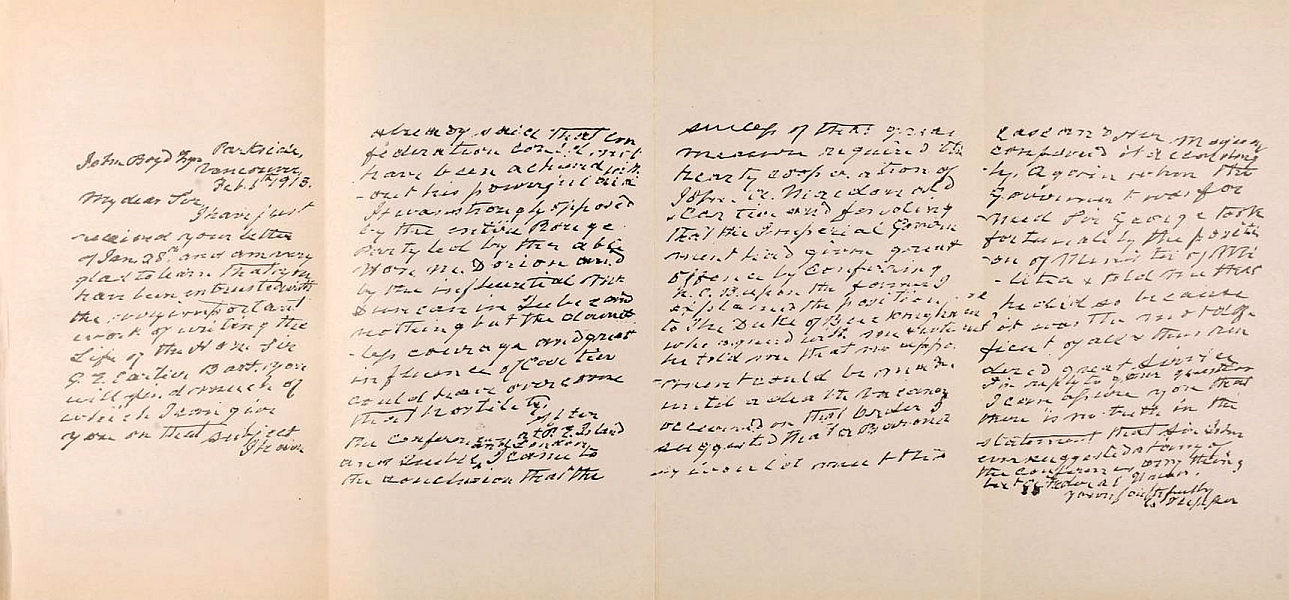 Parkside,
John Boyd Esqr Vancouver,
Feb. 5th 1913.
My dear Sir,
I have just
received your letter
of Jan 28th and am very
glad to learn that you
have been intrusted with
the very important
work of writing the
Life of the Hon. Sir
G. E. Cartier Bart. you
will find much of
which I can give
you on that subject
I have
already said that Con
federation could not
have been achieved with
-out his powerful aid
It was strongly opposed
by the entire Rouge
Party led by the able
Hon. Mr. Dorion and
by the influential
Duncan in Quebec and
nothing but the daunt
-less courage and great
influence of Cartier
could have overcome
that hostility.
After
the Conferences at P. E. Island
and Quebec and London I came to
the conclusion that the
success of that great
measure required the
hearty cooperation of
John A. Macdonald
& Cartier and finding
that the Imperial Govern
ment had given great
offence by conferring
K. C. B. upon the former I
explained the position
to The Duke of Buckingham
who agreed with me
he told me that no appo
-ment could be made
until a death vacancy
occurred in that order I
suggested that a Baronet
-cy would meet the
case and Her Majesty
conferred it accordingly
-ly. Again when the
Government was for
-med Sir George took
fortunately the positi
-on of Minister of Mi
-litia & told me that
he did so because
it was the most diffi
ficult of all & thus ren
dered great service
In reply to your question
I can assure you that
there is no truth in the
statement that Sir John
ever suggested at any of
the Conferences any thing
but a Federal Union.
Yours faithfully
C. Tupper